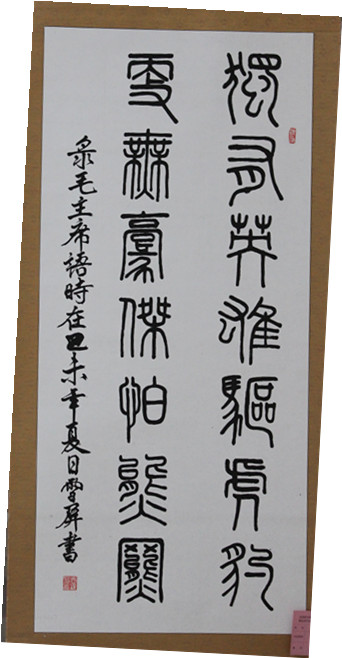 獨有英雄驅虎豹
更無豪傑怕熊羆
彔毛主席語時在己未年夏日雪屏書